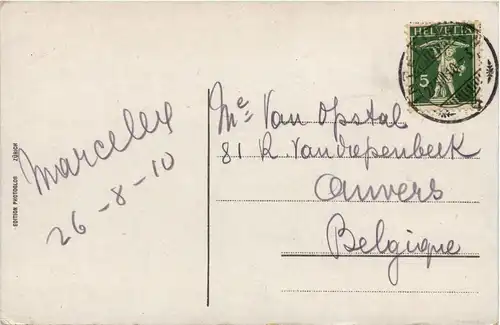 Marcelle
26-8-10
EDITION PHOTOGLOB ZÜRICH
HELVETIA
5
Me Van Opstal
81 R. Vandiepenbeek
Anvers
Belgique